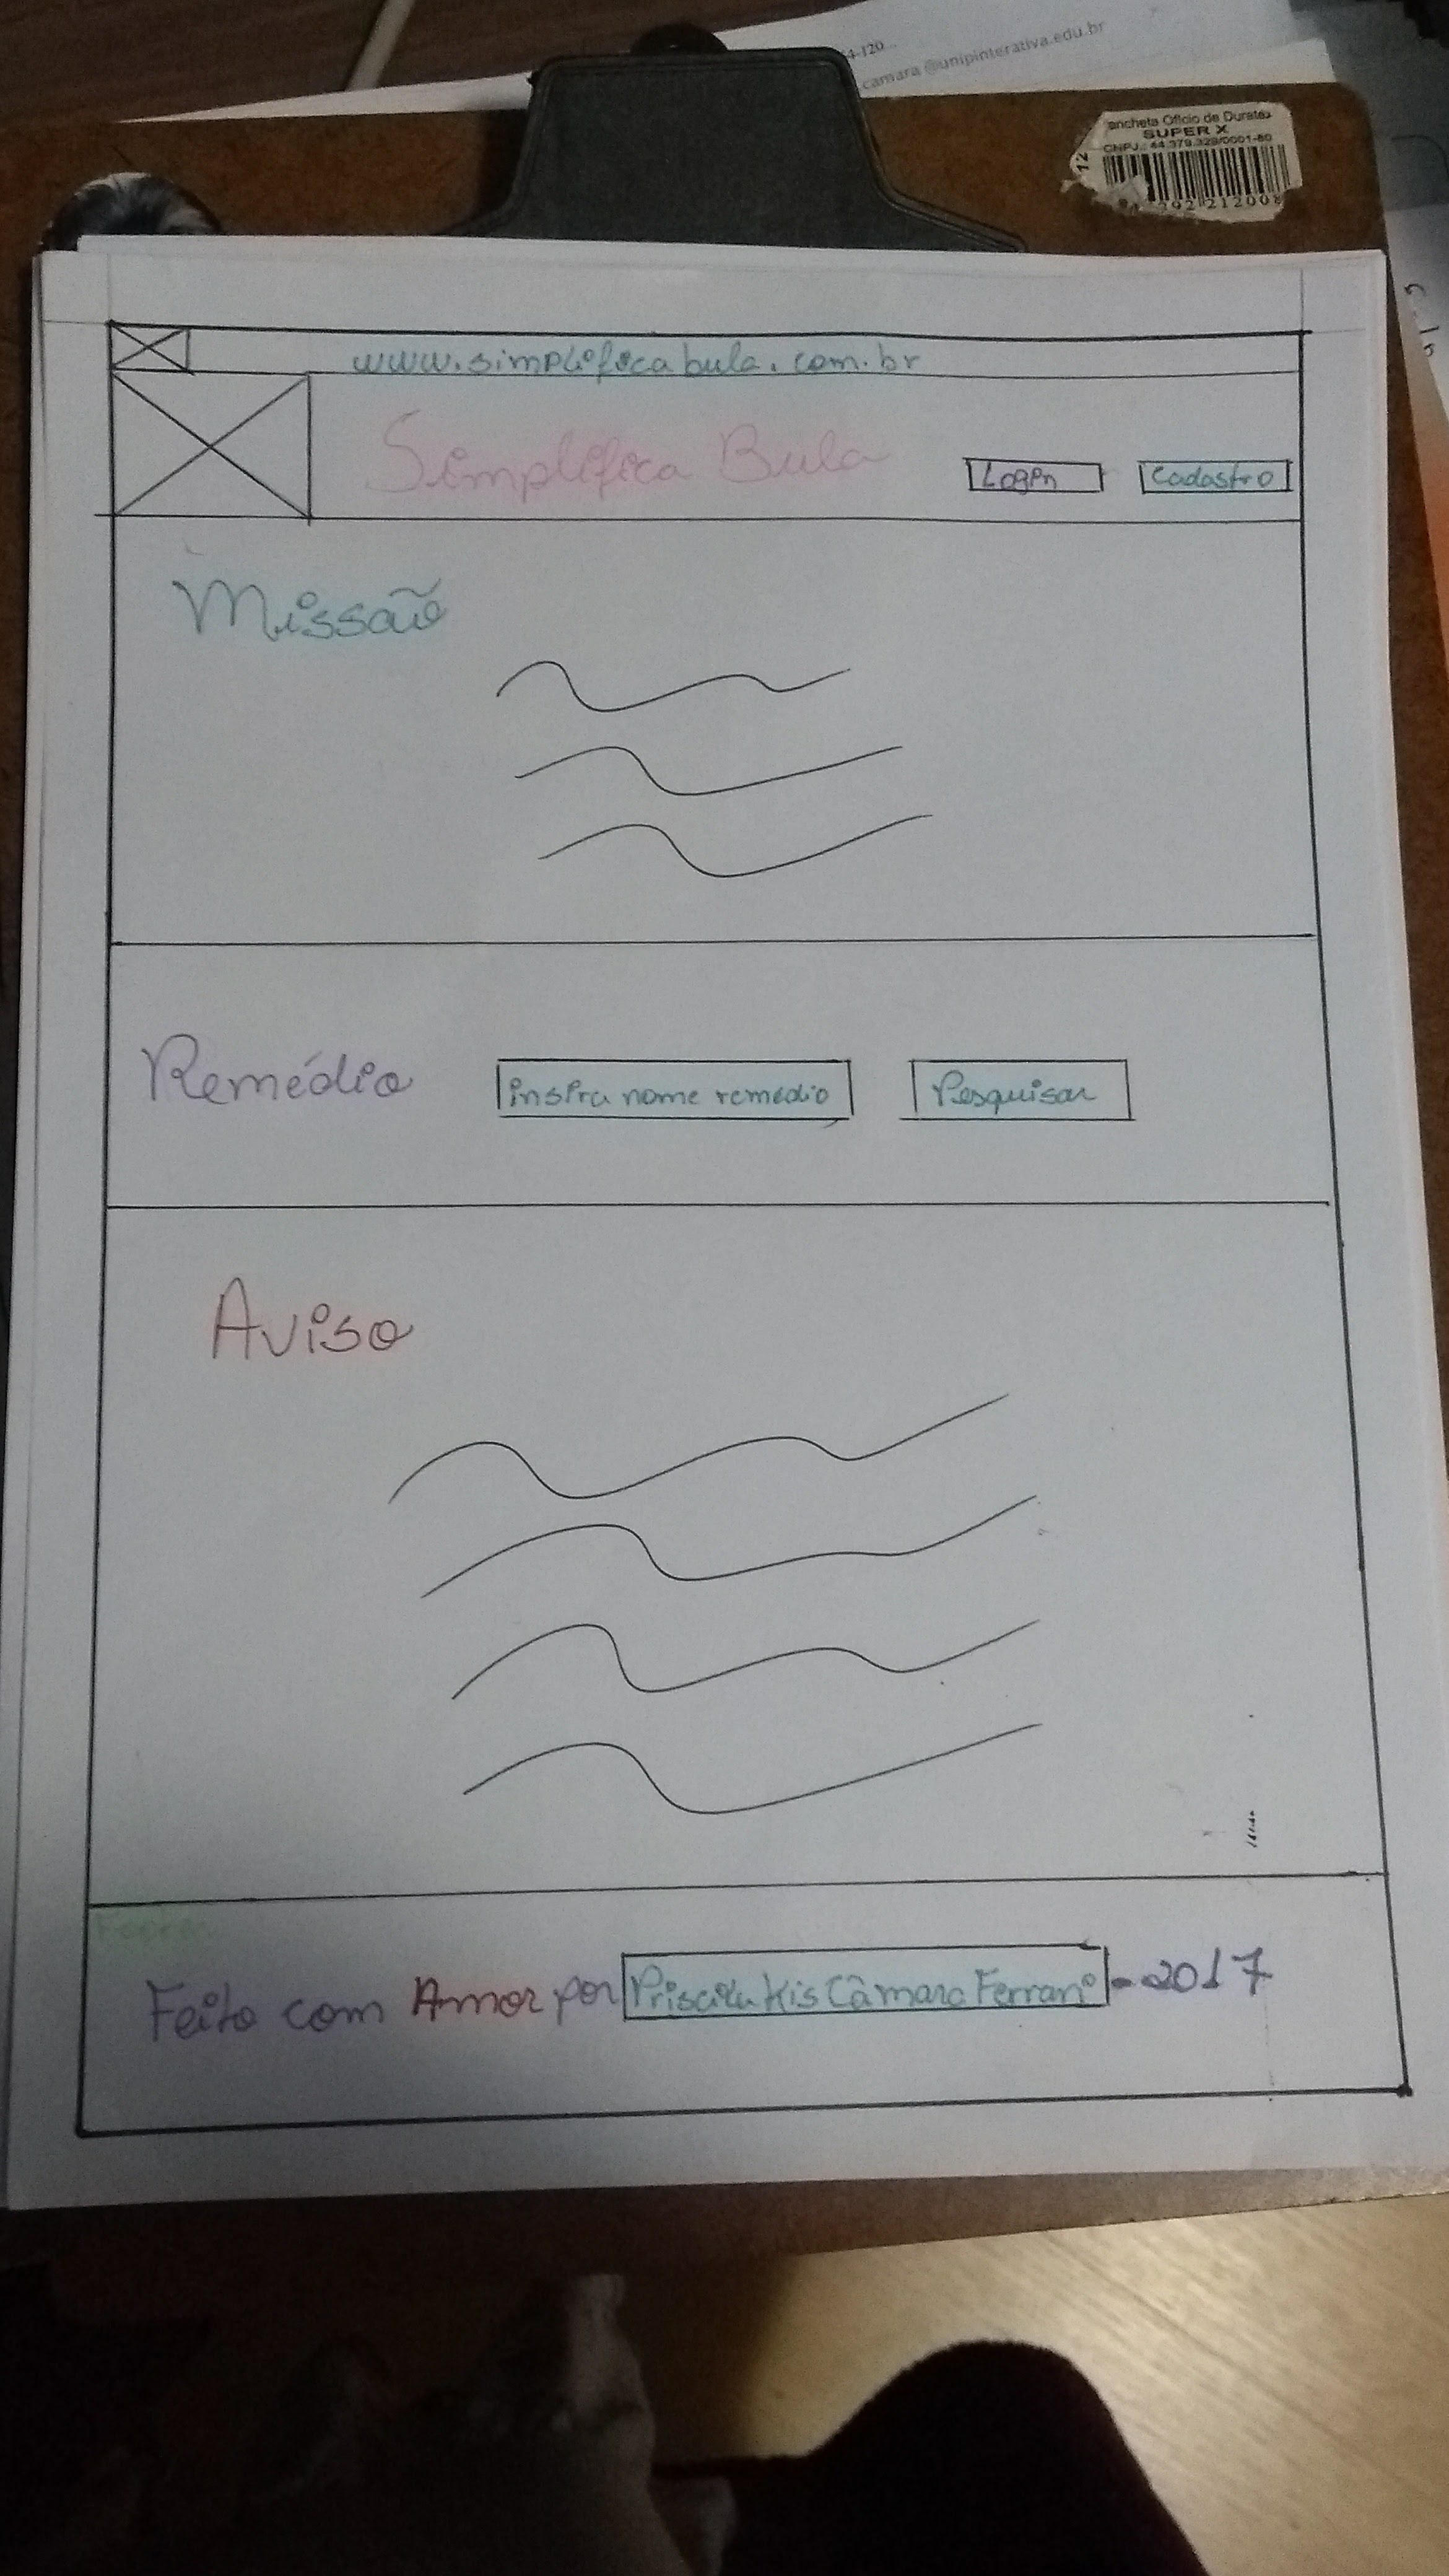 4-120
camara @unipinterativa.edu.br
ancheta Oficio de Duratex
SUPER X
CNPJ.: 44.379.329/0001-80
12
212008
www.simplificabula.com.br
Simplifica Bula
Login
Cadastro
Missão
Remédio
insira nome remédio
Pesquisar
Aviso
Feito com Amor por Priscila Kis Câmara Ferrari - 2017